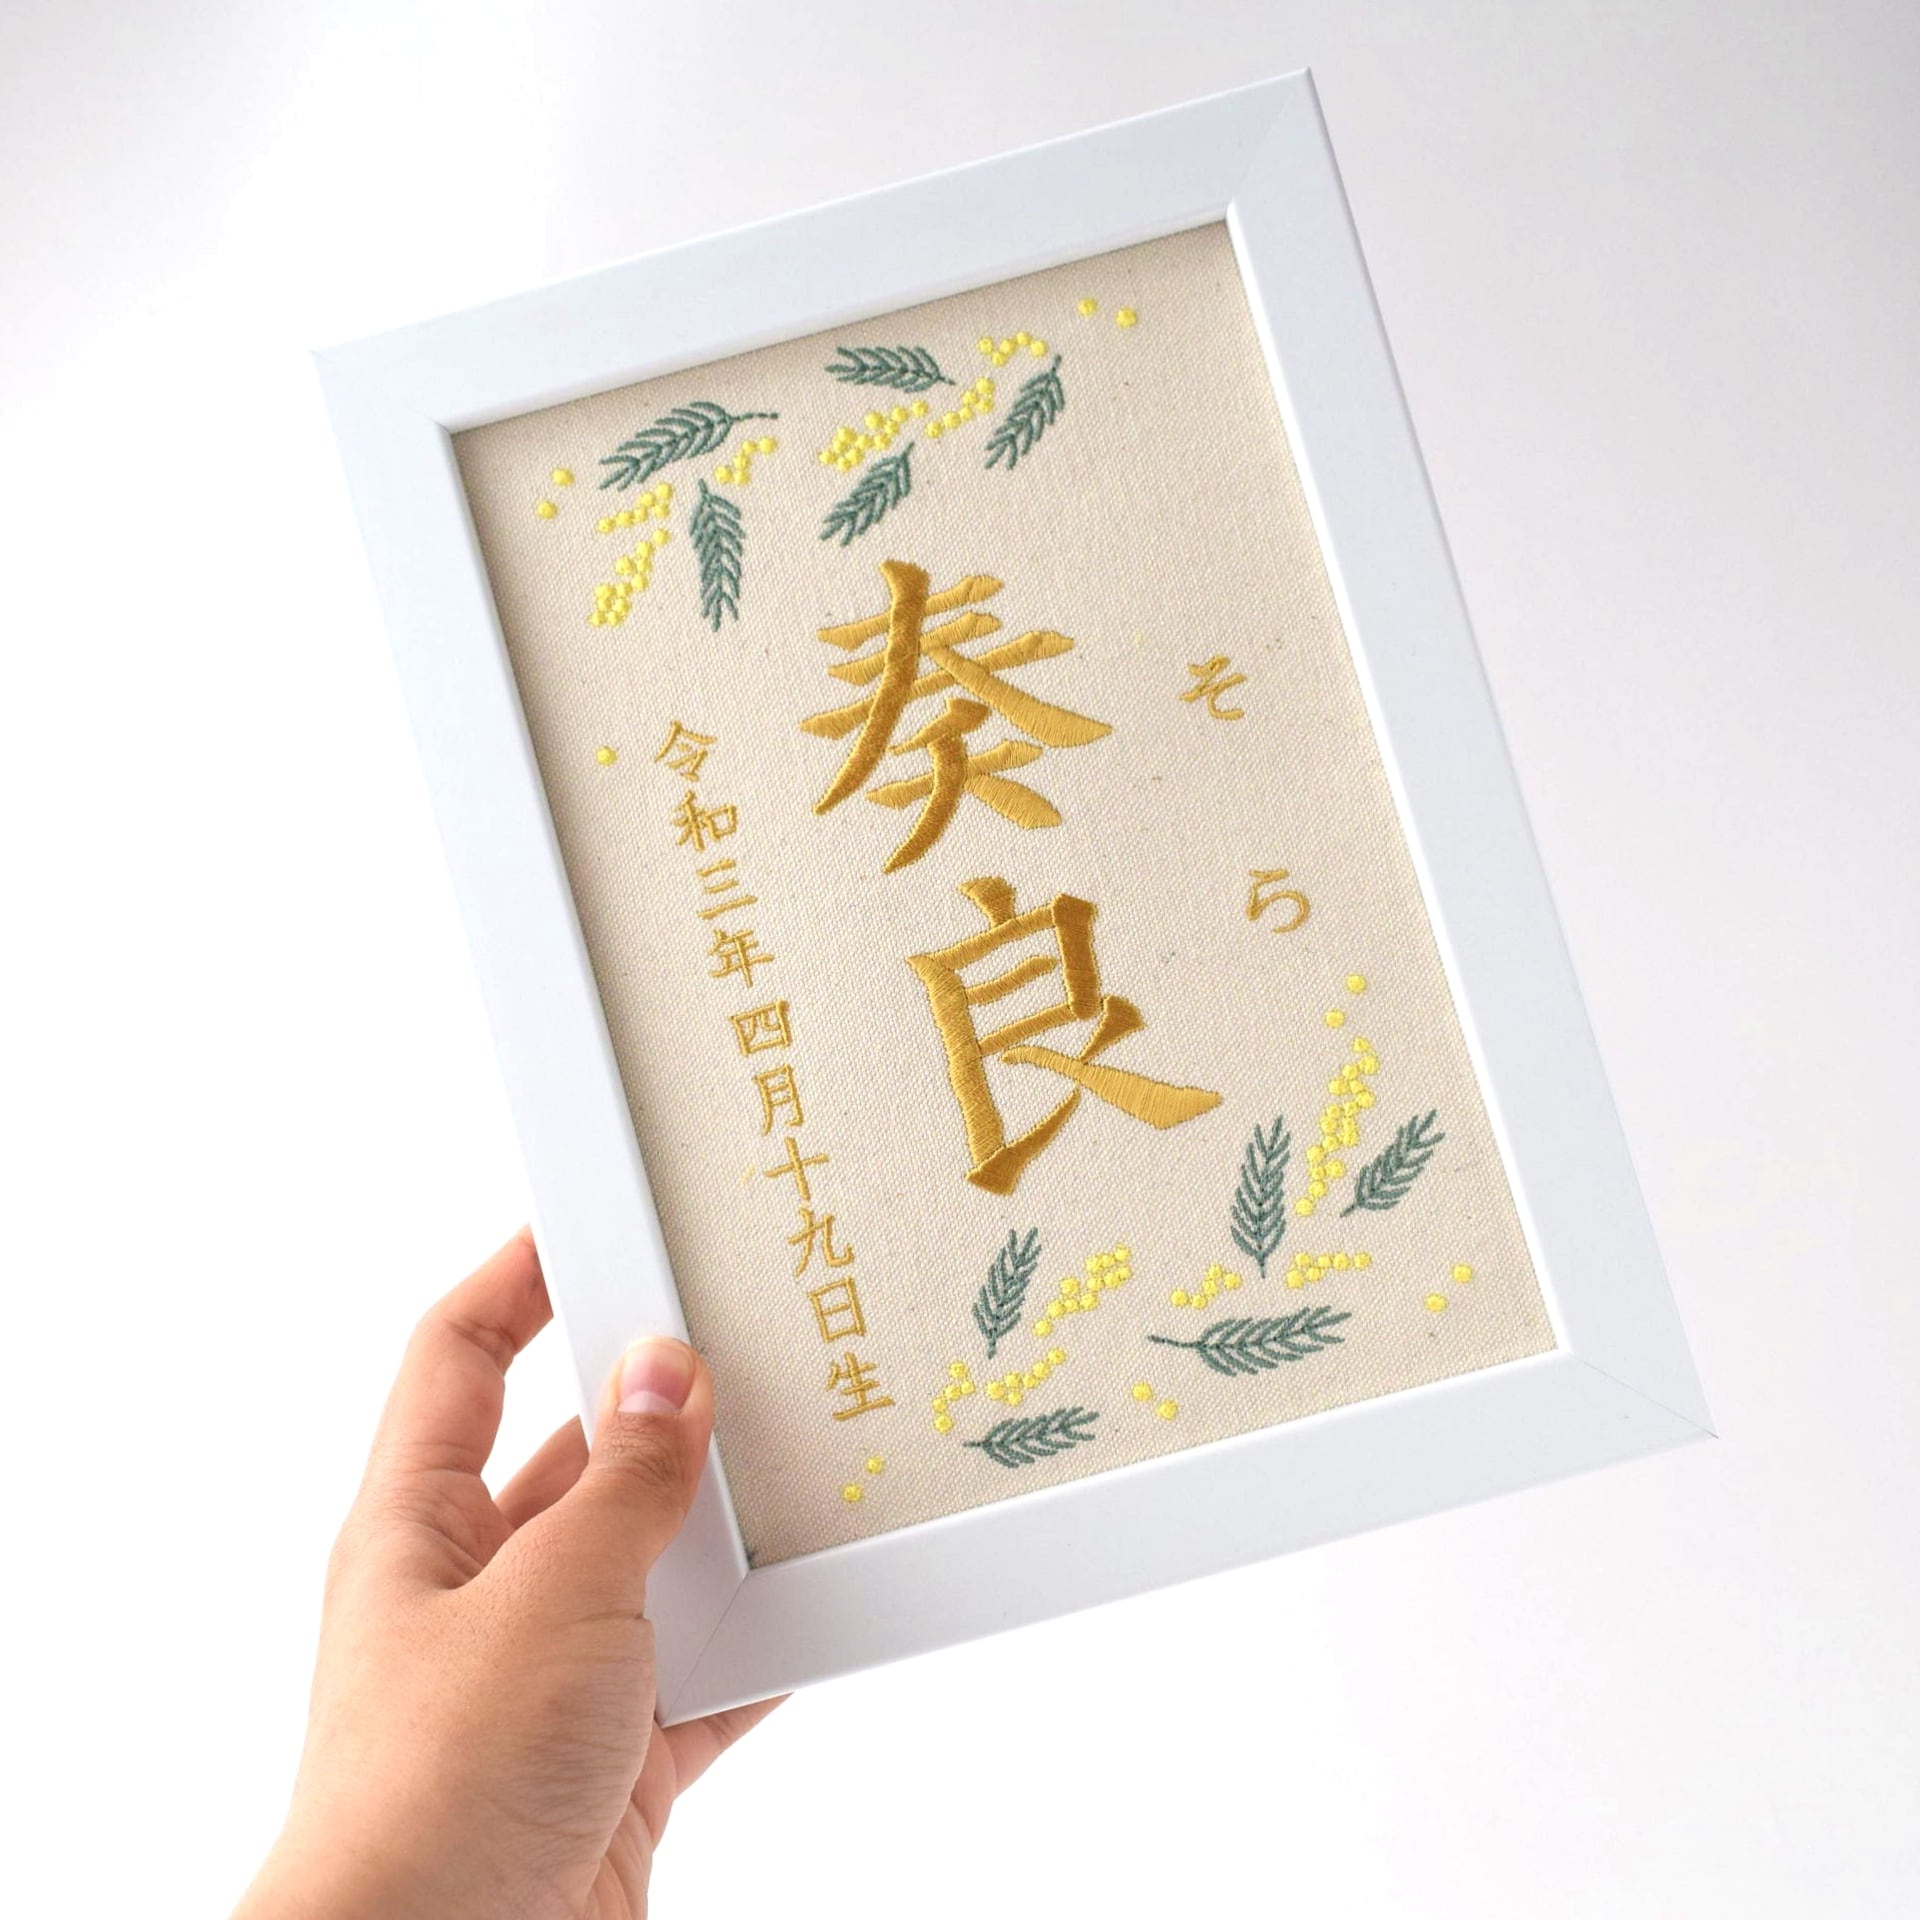 そら
奏良
令和三年四月十九日生